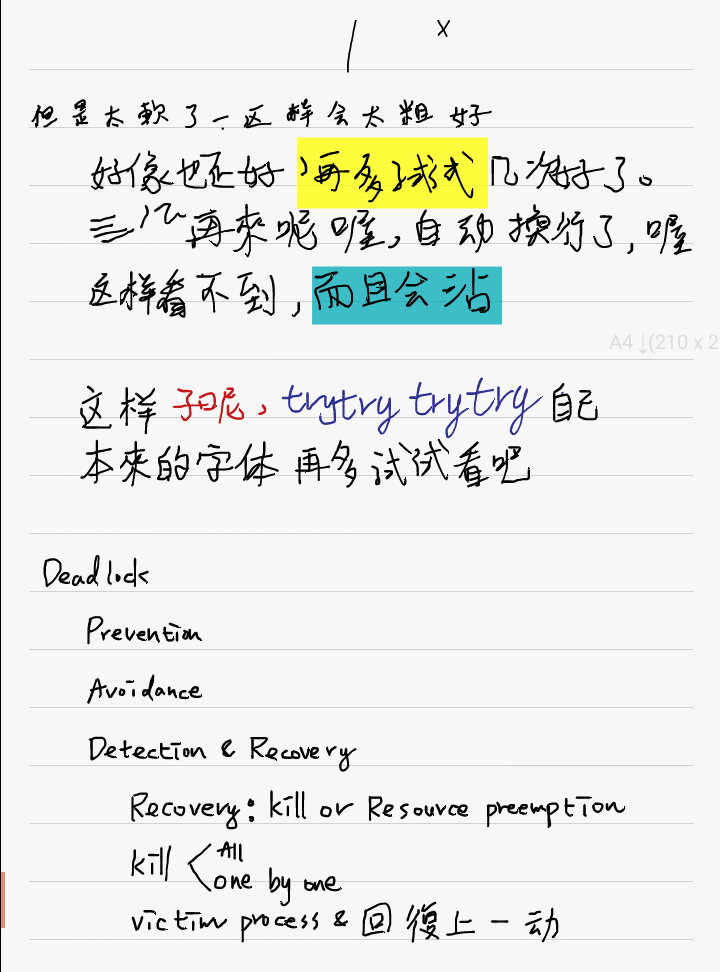 x
但是太軟了一这样会太粗好
好像也还好,再多試式几次好了。
再來呢喔,自动換行了,喔
这样看不到,而且会沾
A4 ↓(210 x 2
这样 呢,trytry trytry 自己
本來的字体 再多試試看吧
Deadlock
Prevention
Avoidance
Detection & Recovery
Recovery: kill or Resource preemption
kill < All
one by one
victim process & 回復上一动